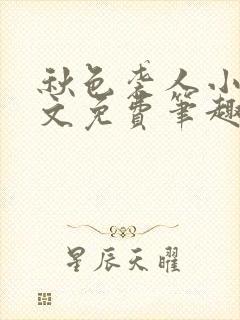 秋色老人小
文免費筆趣
星辰天曜